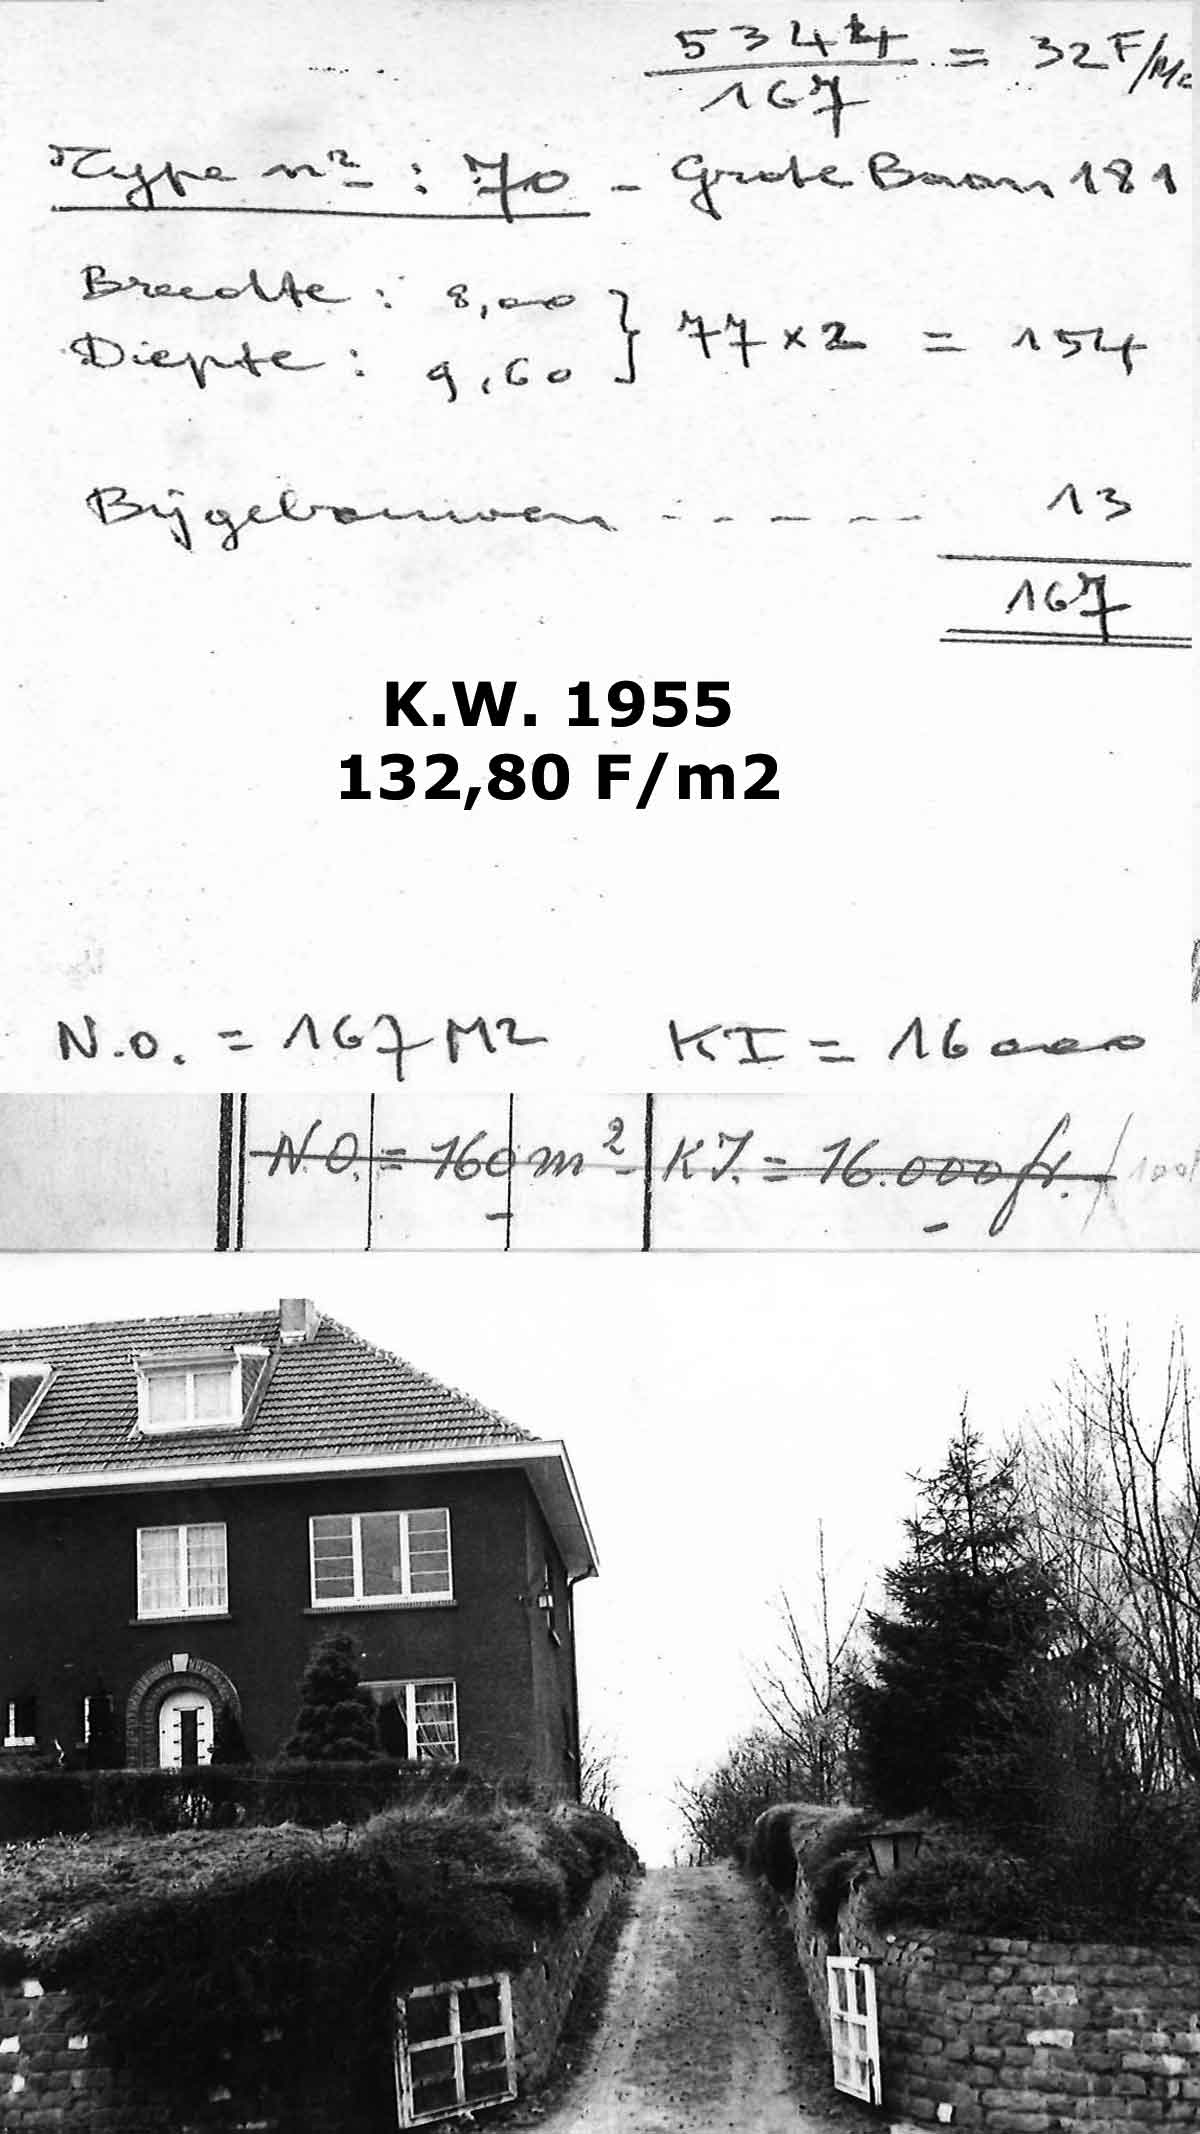 5344 / 167 = 32 F/M2
Type n° : 70 - Grote Baan 181
Breedte : 8,00 } 77 x 2 = 154
Diepte : 9,60
Bijgebouwen - - - - - 13
167
K.W. 1955
132,80 F/m2
N.O. = 167 M2 KI = 16000
N.O. = 160 m² K.I. = 16.000 fr.